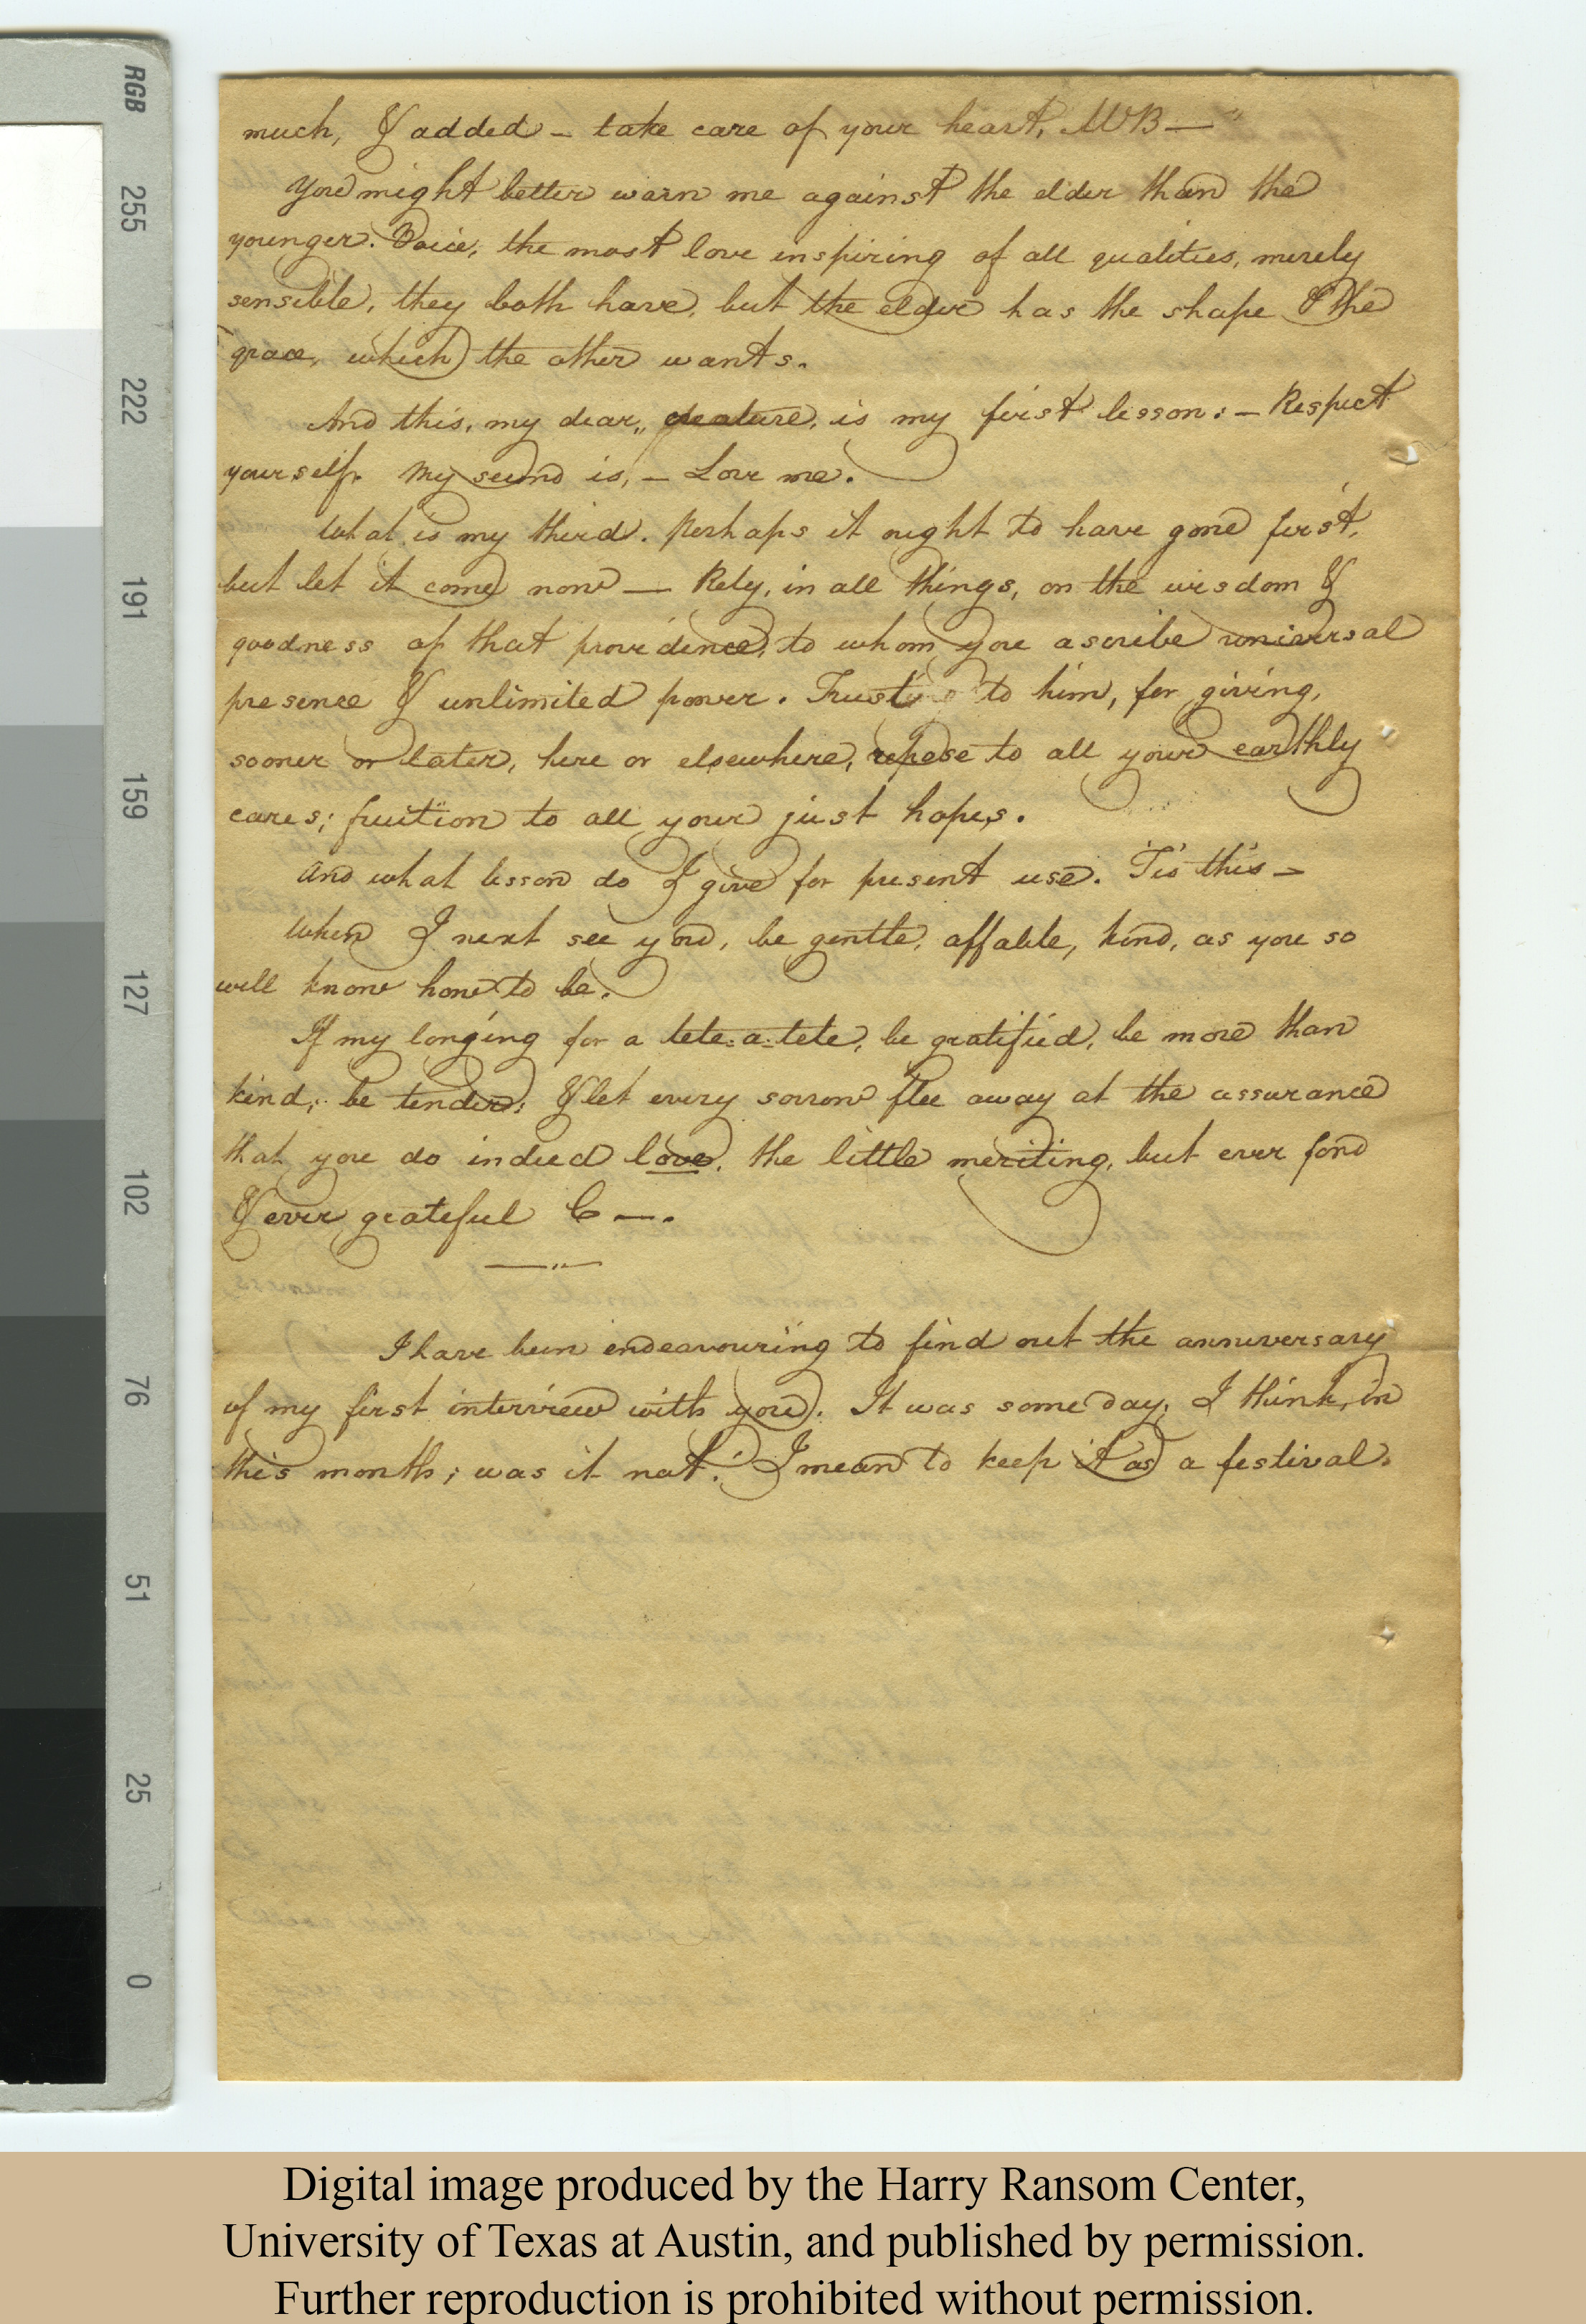 RGB
255
222
191
159
127
102
76
51
25
0
much, & added – take care of your heart, MB —"
You might better warn me against the elder than the
younger. Voice, the most love inspiring of all qualities, merely
sensible, they both have, but the elder has the shape & the
grace, which the other wants.
And this, my dear,, creature, is my first lesson: – Respect
yourself. My second is, – Love me.
What is my third. Perhaps it ought to have gone first,
but let it come now — Rely, in all things, on the wisdom &
goodness of that providence, to whom you ascribe universal
presence & unlimited power. Trust to him, for giving,
sooner or later, here or elsewhere, repose to all your earthly
cares; fruition to all your just hopes.
And what lesson do I give for present use. 'Tis this –
When I next see you, be gentle, affable, kind, as you so
well know how to be.
If my longing for a tete-a-tete, be gratified, be more than
kind; be tender; & let every sorrow flee away at the assurance
that you do indeed love, the little meriting, but ever fond
& ever grateful C —.
I have been endeavouring to find out the anniversary
of my first interview with you. It was some day, I think, in
this month; was it not? I mean to keep it as a festival.
Digital image produced by the Harry Ransom Center,
University of Texas at Austin, and published by permission.
Further reproduction is prohibited without permission.